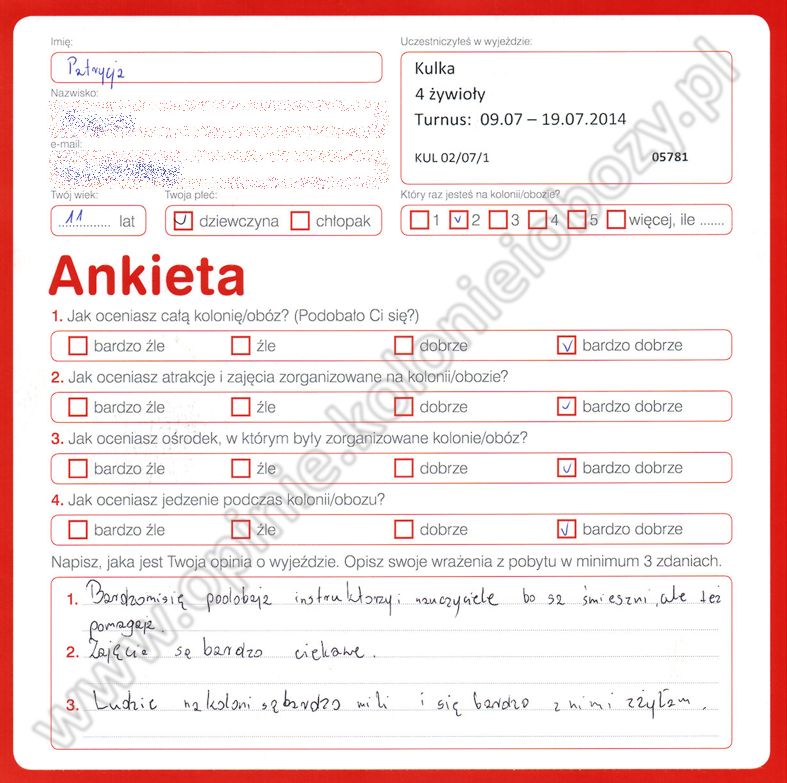 Imię:
Patrycja
Nazwisko:
e-mail:
Twój wiek:
11 lat
Twoja płeć:
dziewczyna chłopak
Uczestniczyłeś w wyjeździe:
Kulka
4 żywioły
Turnus: 09.07 – 19.07.2014
KUL 02/07/1 05781
Który raz jesteś na kolonii/obozie?
1 2 3 4 5 więcej, ile .......
Ankieta
1. Jak oceniasz całą kolonię/obóz? (Podobało Ci się?)
bardzo źle źle dobrze bardzo dobrze
2. Jak oceniasz atrakcje i zajęcia zorganizowane na kolonii/obozie?
bardzo źle źle dobrze bardzo dobrze
3. Jak oceniasz ośrodek, w którym były zorganizowane kolonie/obóz?
bardzo źle źle dobrze bardzo dobrze
4. Jak oceniasz jedzenie podczas kolonii/obozu?
bardzo źle źle dobrze bardzo dobrze
Napisz, jaka jest Twoja opinia o wyjeździe. Opisz swoje wrażenia z pobytu w minimum 3 zdaniach.
1. Bardzomisię podobają instruktorzy i nauczyciele bo są śmieszni, ale też
pomagają.
2. Zajęcia są bardzo ciekawe.
3. Ludzie na koloni są bardzo mili i się bardzo z nimi zżyłam.
www.opinie.kolonieiobozy.pl